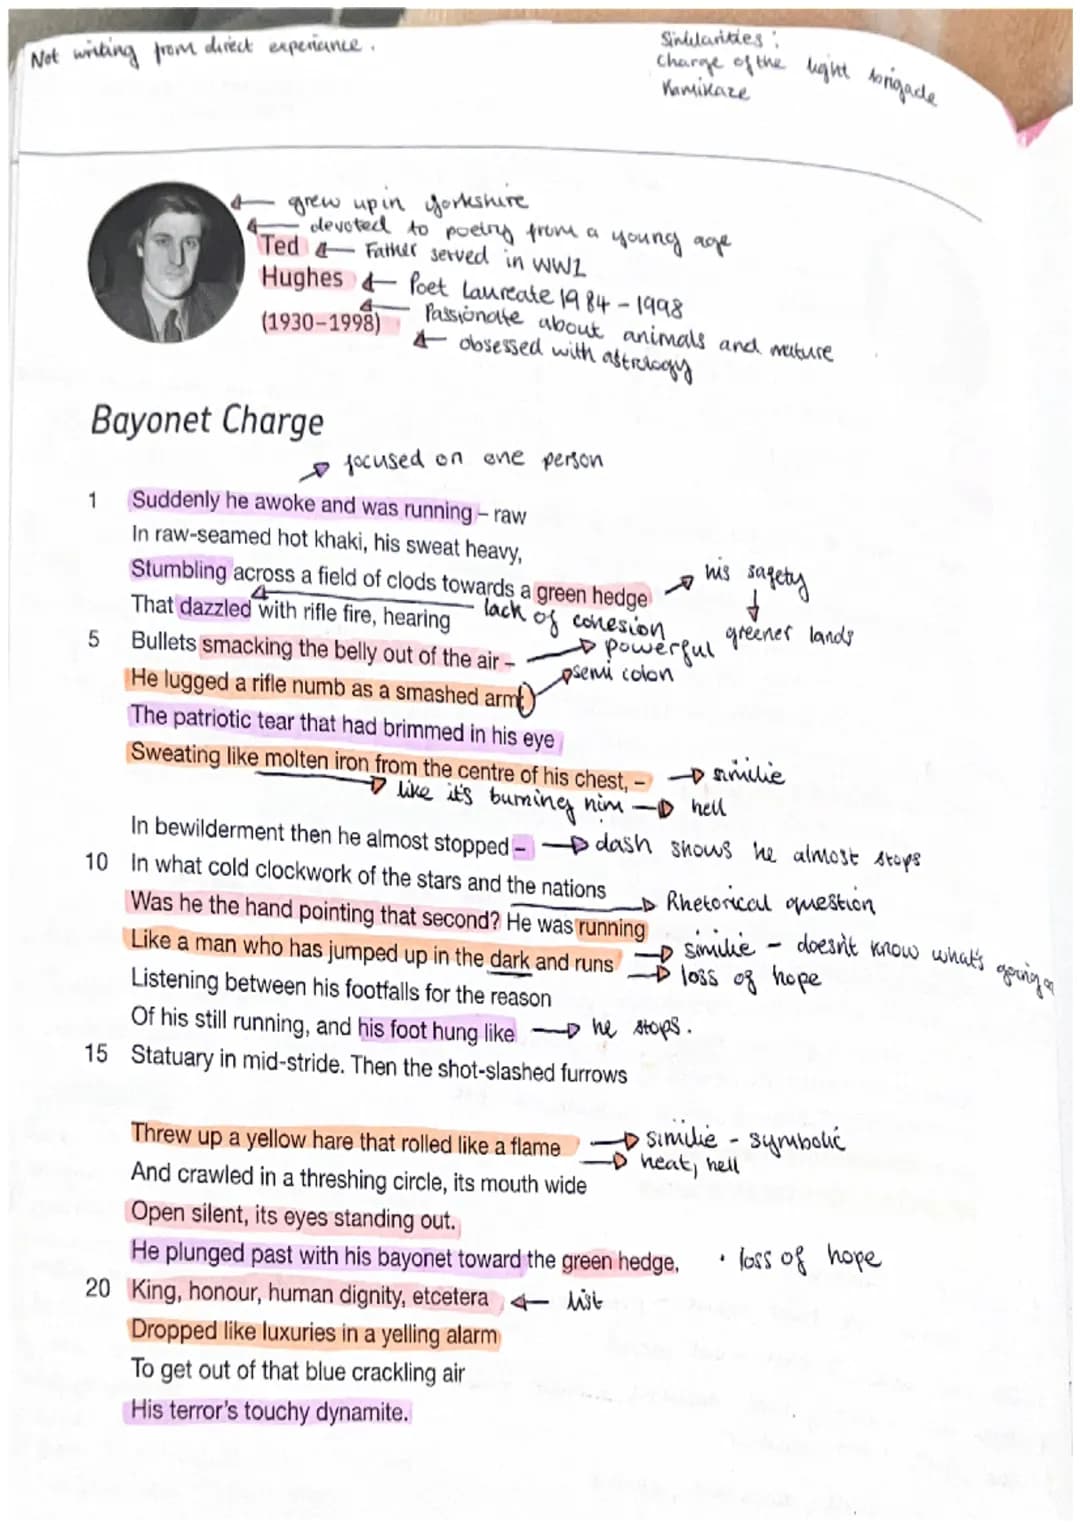 Not writing from direct experiance.
Similarities:
Charge of the light brigade
Kamikaze
grew up in Yorkshire
devoted to poetry from a young age
Ted
Father served in WW1
Hughes
Poet Laureate 1984-1998
(1930–1998)
Passionate about animals and nature
obsessed with astrology
Bayonet Charge
focused on one person
1 Suddenly he awoke and was running – raw
In raw-seamed hot khaki, his sweat heavy,
Stumbling across a field of clods towards a green hedge
his safety
That dazzled with rifle fire, hearing
lack of cohesion
greener lands
5 Bullets smacking the belly out of the air –
powerful
He lugged a rifle numb as a smashed arm;
semi colon
The patriotic tear that had brimmed in his eye
Sweating like molten iron from the centre of his chest, –
similie
like it's burning him
hell
In bewilderment then he almost stopped –
dash shows he almost stops
10 In what cold clockwork of the stars and the nations
Rhetorical question
Was he the hand pointing that second? He was running
similie - doesn't know what's going on
Like a man who has jumped up in the dark and runs
loss of hope
Listening between his footfalls for the reason
Of his still running, and his foot hung like
he stops.
15 Statuary in mid-stride. Then the shot-slashed furrows
Threw up a yellow hare that rolled like a flame
similie - symbolic
heat, hell
And crawled in a threshing circle, its mouth wide
Open silent, its eyes standing out.
He plunged past with his bayonet toward the green hedge,
• loss of hope
20 King, honour, human dignity, etcetera
list
Dropped like luxuries in a yelling alarm
To get out of that blue crackling air
His terror's touchy dynamite.